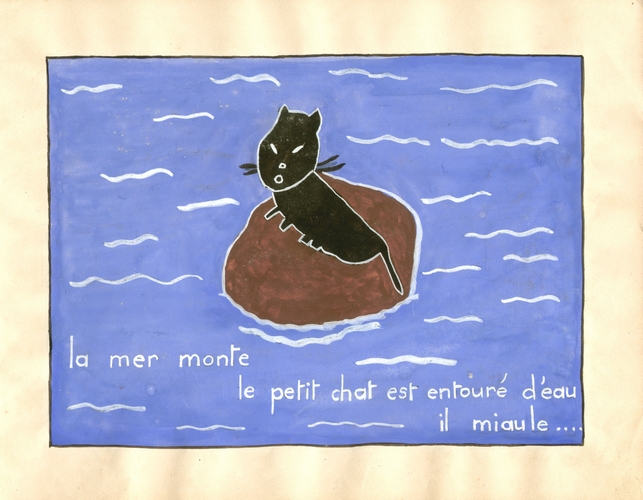 la mer monte
le petit chat est entouré d'eau
il miaule....